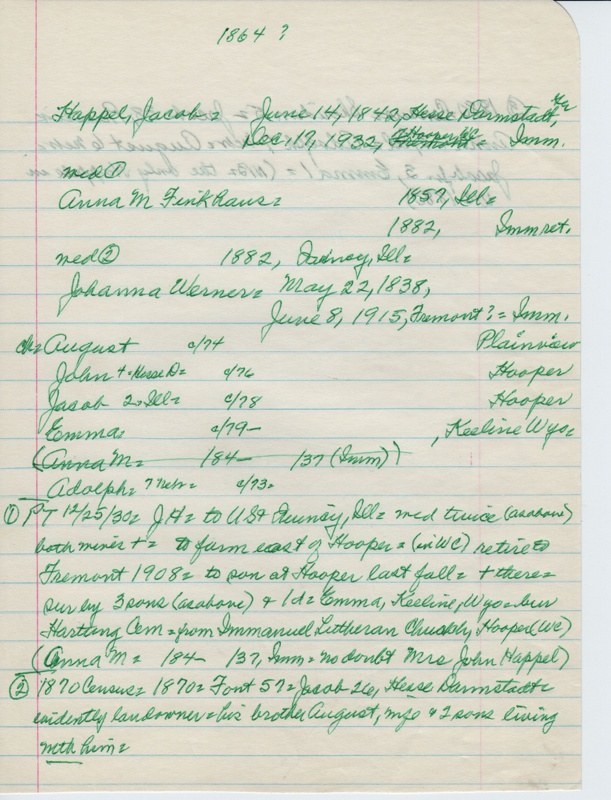 1864 ?
Happel, Jacob = June 14, 1842, Hesse Darmstadt,
Dec. 17, 1932, Hooper = Imm.
med ①
Anna M Finkhaus = 1857, Ill =
1882, Imm ret.
med ② 1882, Quincy, Ill =
Johanna Werner = May 22, 1838,
June 8, 1915, Fremont ? = Imm.
ch = August c/74 Plainview
John + = Hesse D = c/76 Hooper
Jacob 2 = Ill = c/78 Hooper
Emma = c/79 - , Keeline Wyo =
(Anna M = 184- 137 (Imm))
Adolph = ? Neb = c/73 =
① PT 12/25/30 = JH = to US + Quincy, Ill = med twice (as above)
both minis + = to farm east of Hooper = (in WC) retire to
Fremont 1908 = to son at Hooper last fall = + there =
sur by 3 sons (as above) & 1 d = Emma, Keeline, Wyo = bur
Hartung Cem = from Immanuel Lutheran Church, Hooper (WC)
(Anna M = 184- 137, Imm = no doubt Mrs John Happel)
② 1870 Census = 1870 = Font 57 = Jacob 26, Hesse Darmstadt =
evidently landowner = his brother August, wife & 2 sons living
with him =